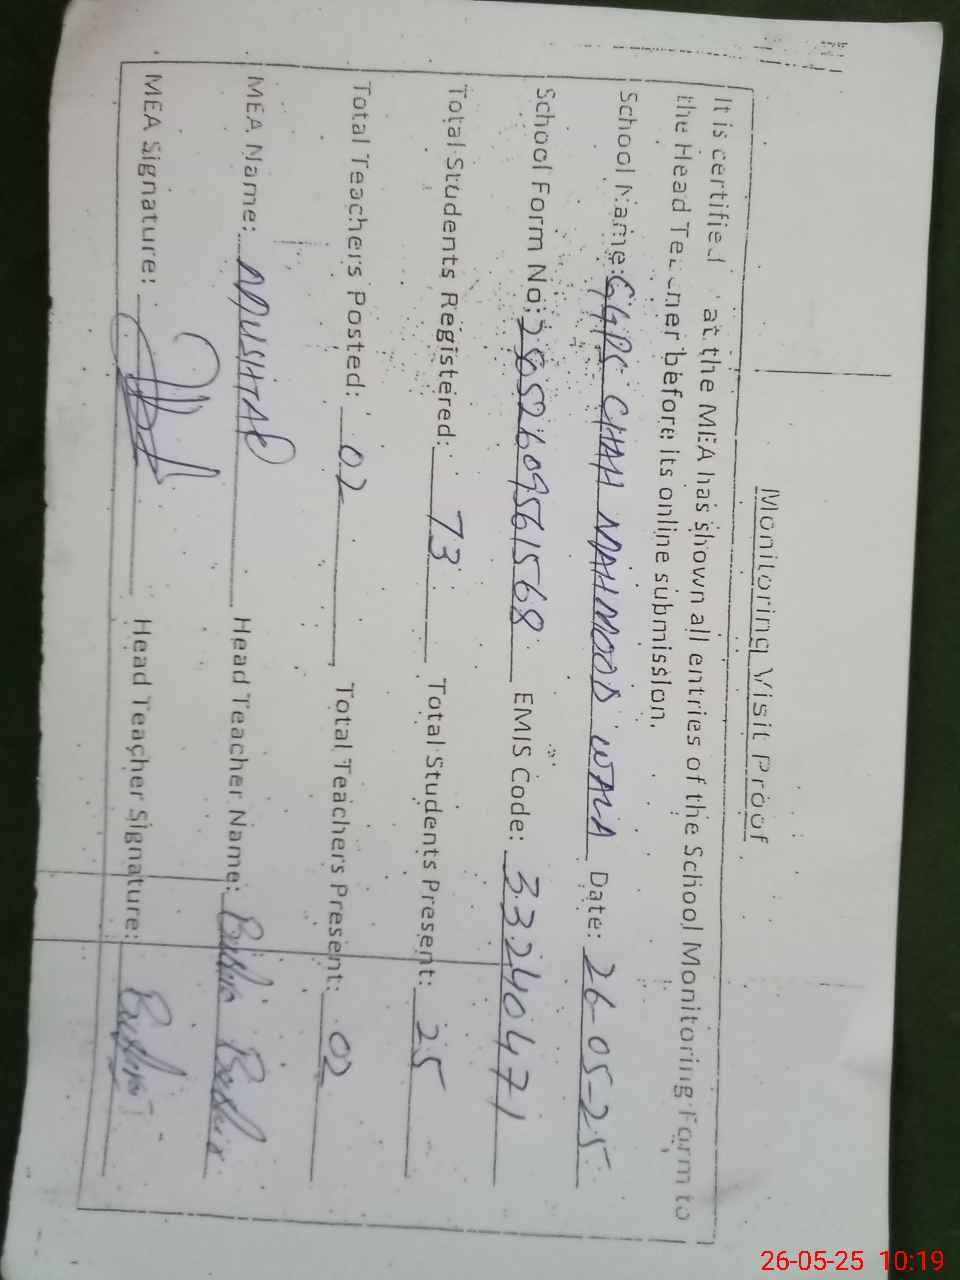 Monitoring Visit Proof
It is certified that the MEA has shown all entries of the School Monitoring Form to
the Head Teacher before its online submission.
School Name: GGPS CHAH MAHMOOD WALA Date: 26-05-25
School Form No: 26052609561568 EMIS Code: 33240471
Total Students Registered: 73 Total Students Present: 25
Total Teachers Posted: 02 Total Teachers Present: 02
MEA Name: Head Teacher Name: Bushra
MEA Signature: Head Teacher Signature: Bushra
26-05-25 10:19